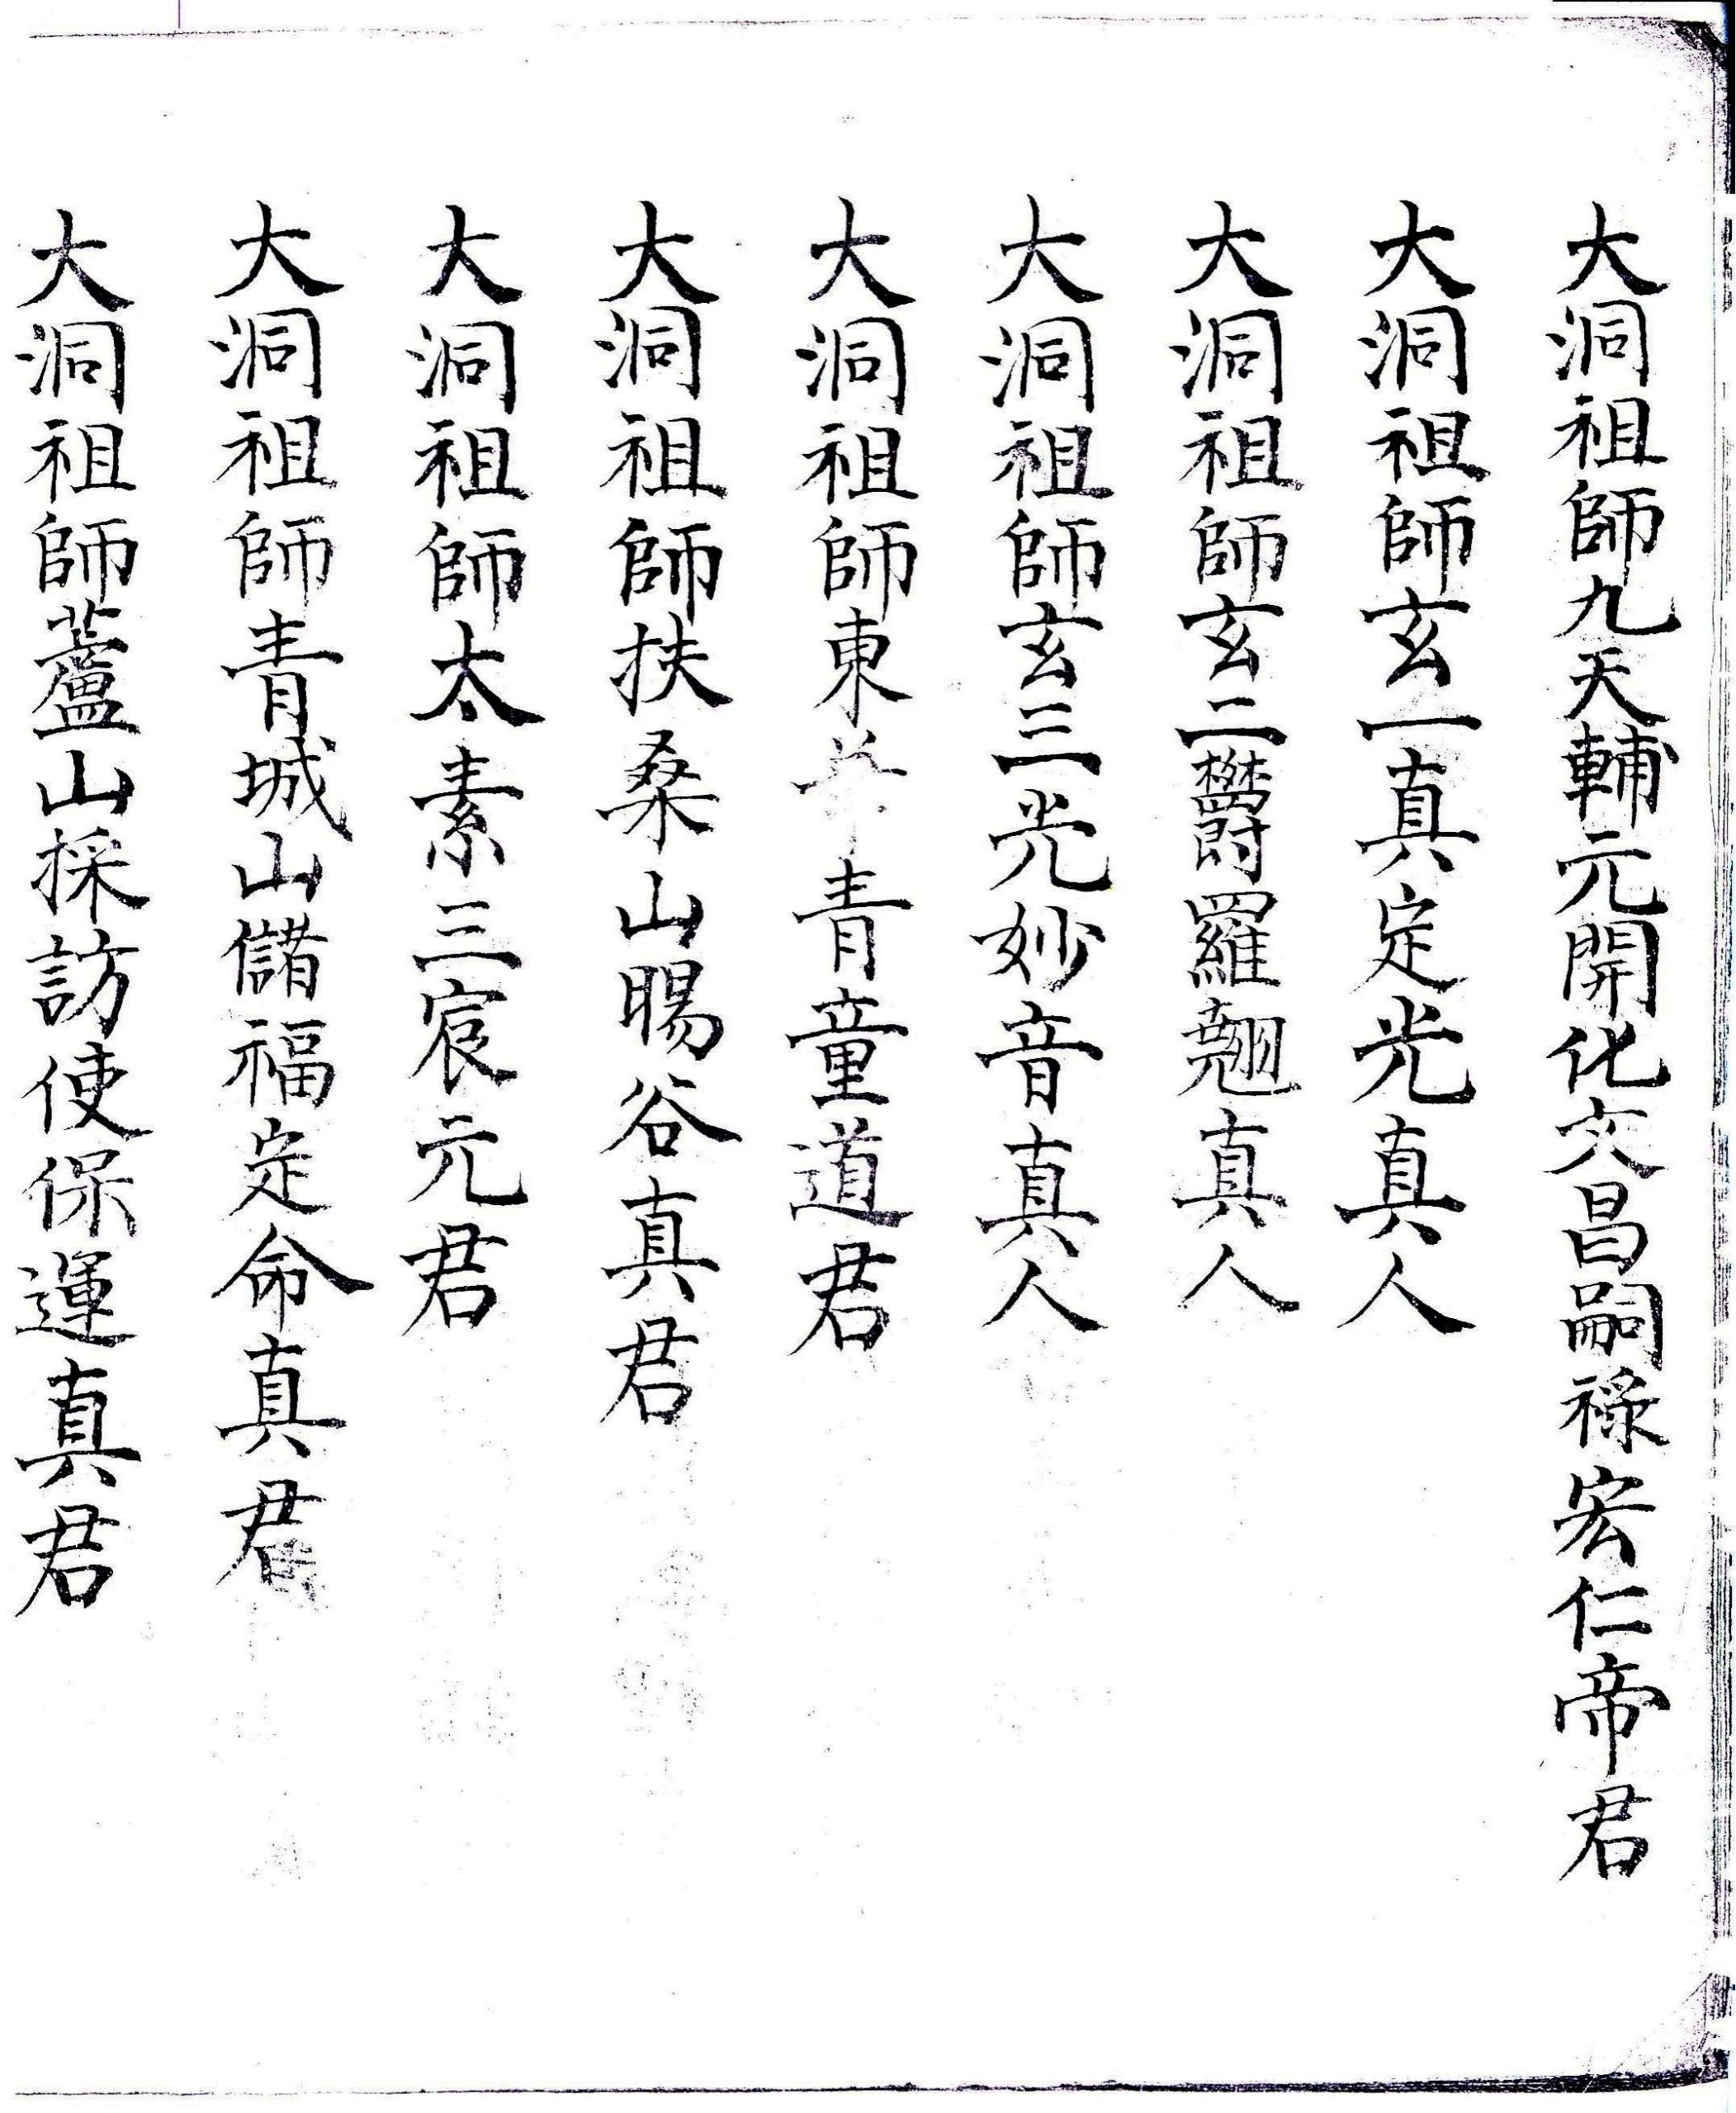 大洞祖師九天輔元開化文昌嗣祿宏仁帝君
大洞祖師玄一真定光真人
大洞祖師玄二鬱羅翹真人
大洞祖師玄三光妙音真人
大洞祖師東青童道君
大洞祖師扶桑山暘谷真君
大洞祖師太素三宸元君
大洞祖師青城山儲福定命真君
大洞祖師蘆山採訪使保運真君